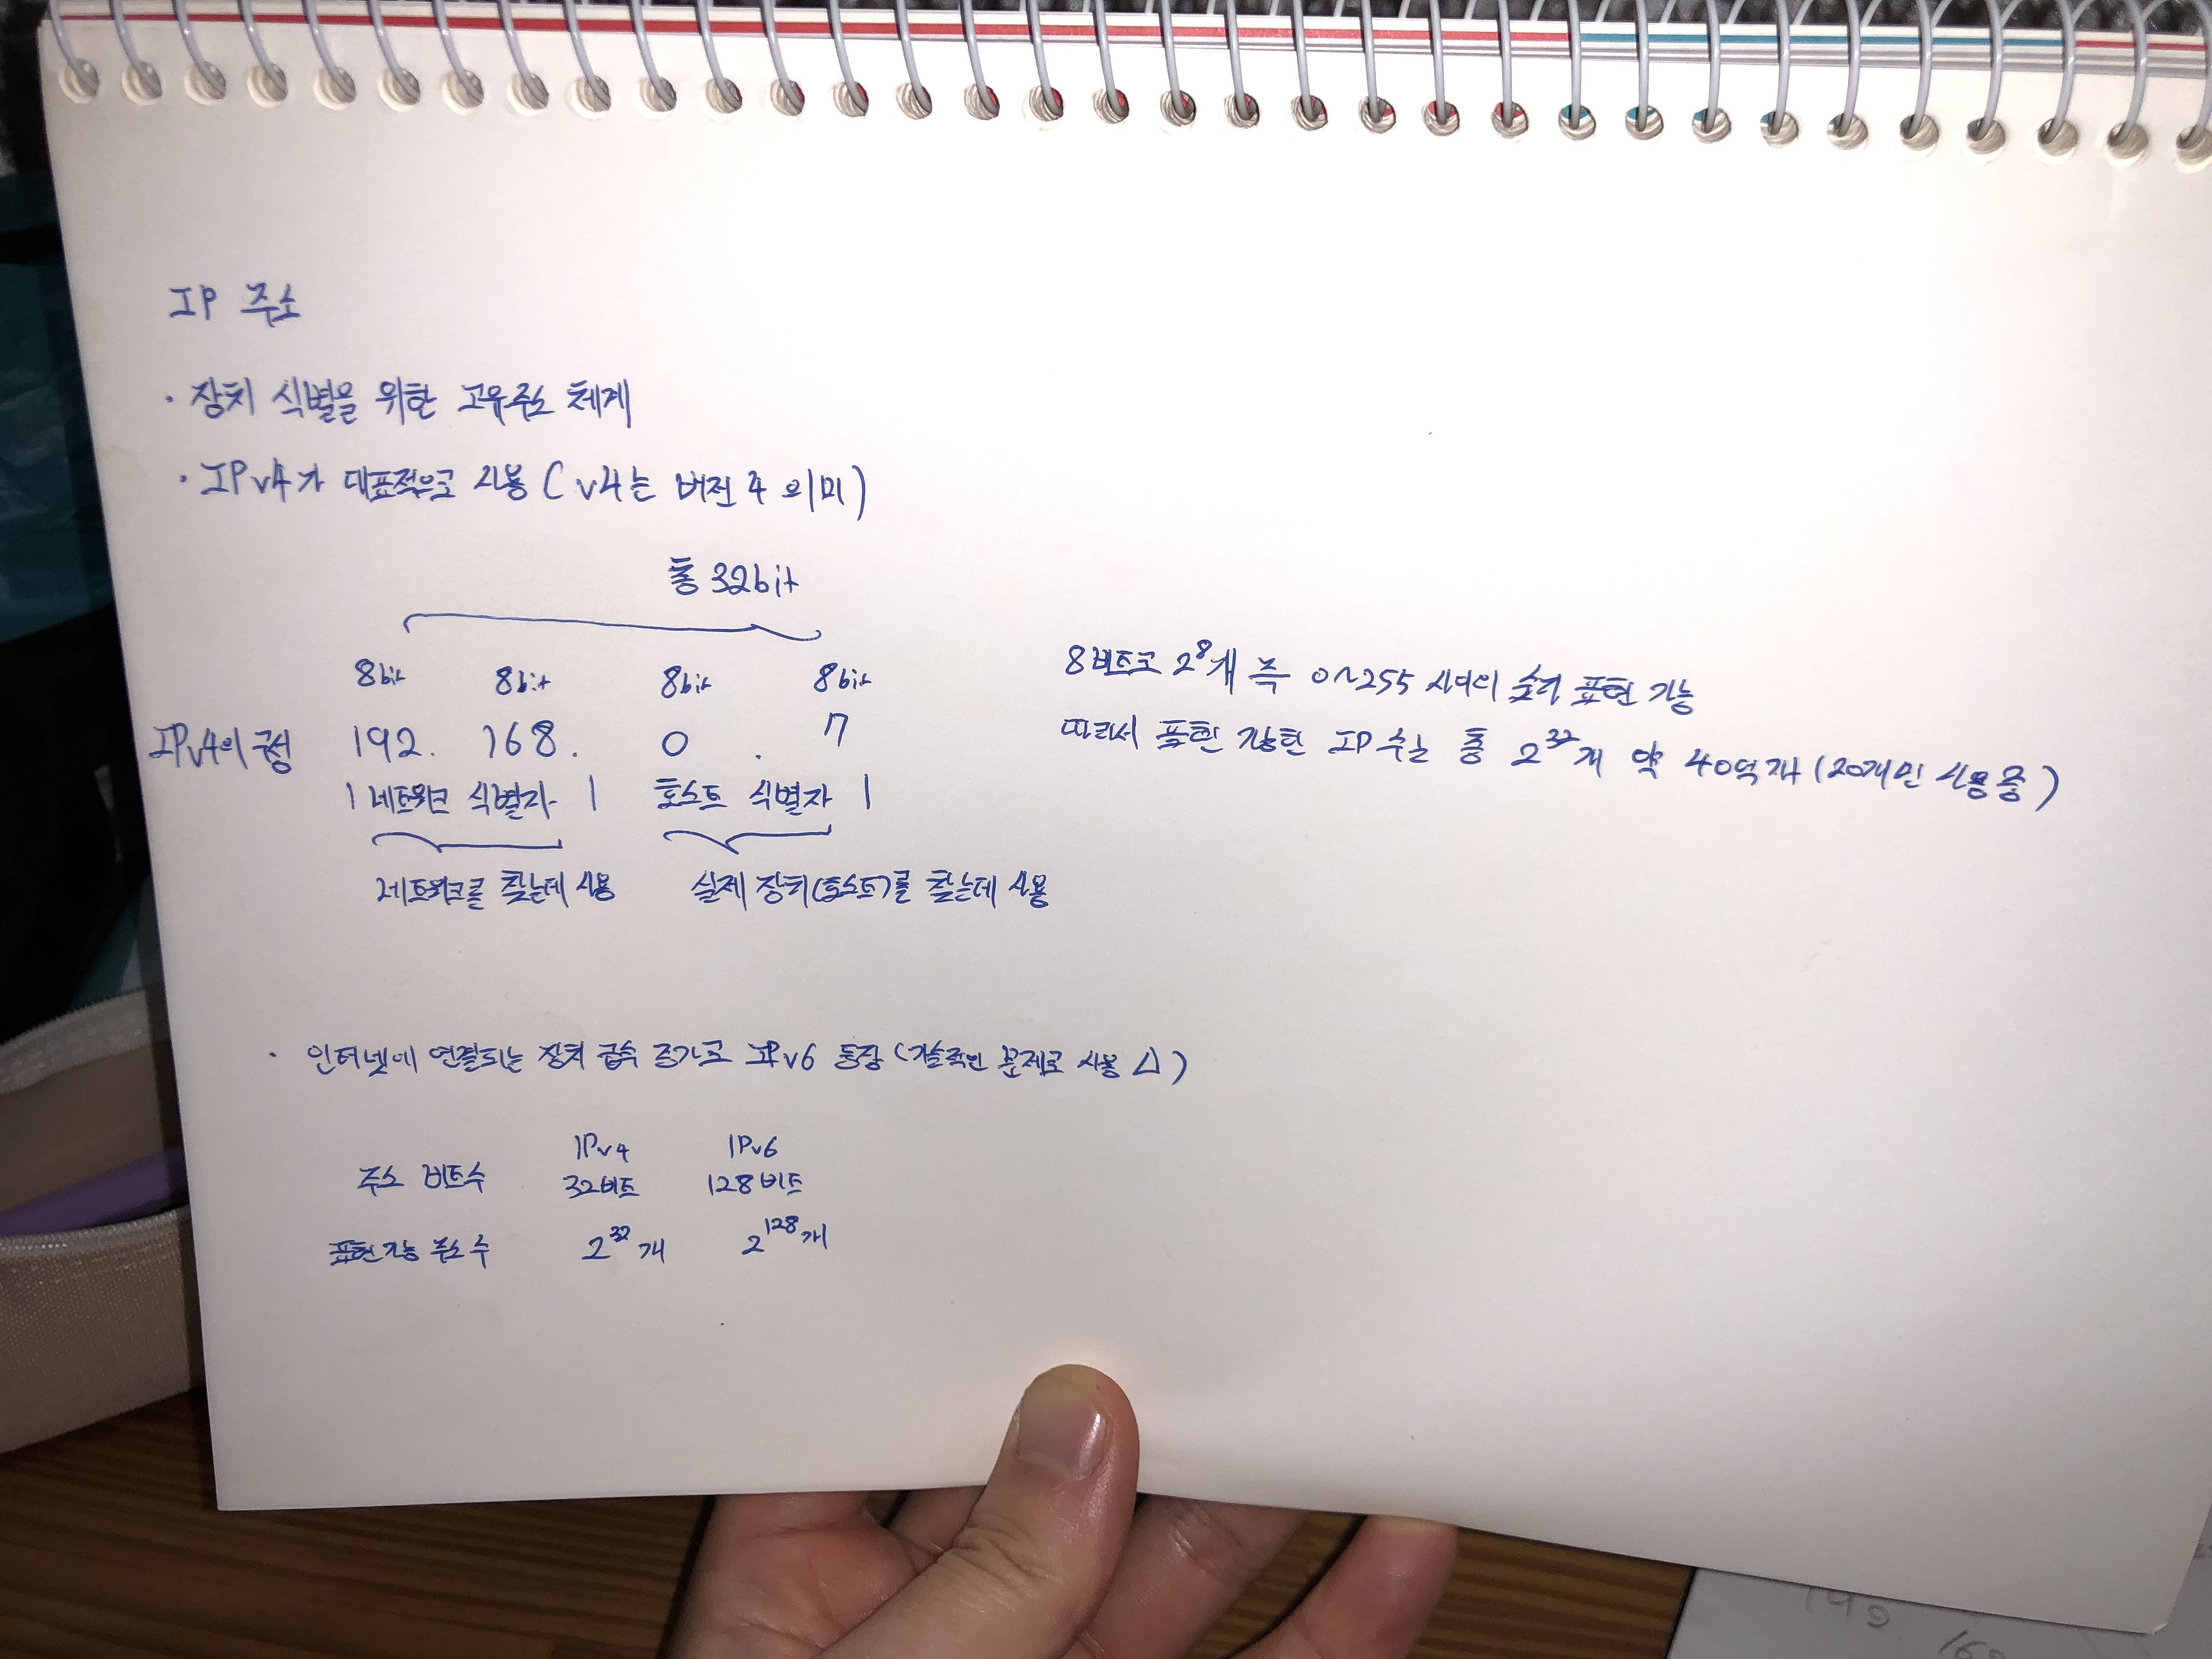 IP 주소
· 장치 식별을 위한 고유주소 체계
· IPv4가 대표적으로 사용 (v4는 버전 4 의미)
총 32bit
8bit 8bit 8bit 8bit
IPv4의 구성 192. 168. 0 . 7
| 네트워크 식별자 | 호스트 식별자 |
네트워크를 찾는데 사용 실제 장치(호스트)를 찾는데 사용
8비트로 2⁸개 즉 0~255 사이의 숫자 표현 가능
따라서 표현 가능한 IP 수는 총 2³²개 약 40억개 (20개만 사용중)
· 인터넷에 연결되는 장치 급속 증가로 IPv6 등장 (기술적인 문제로 사용 △)
IPv4 IPv6
주소 비트수 32비트 128비트
표현가능 주소 수 2³²개 2¹²⁸개
192. 168